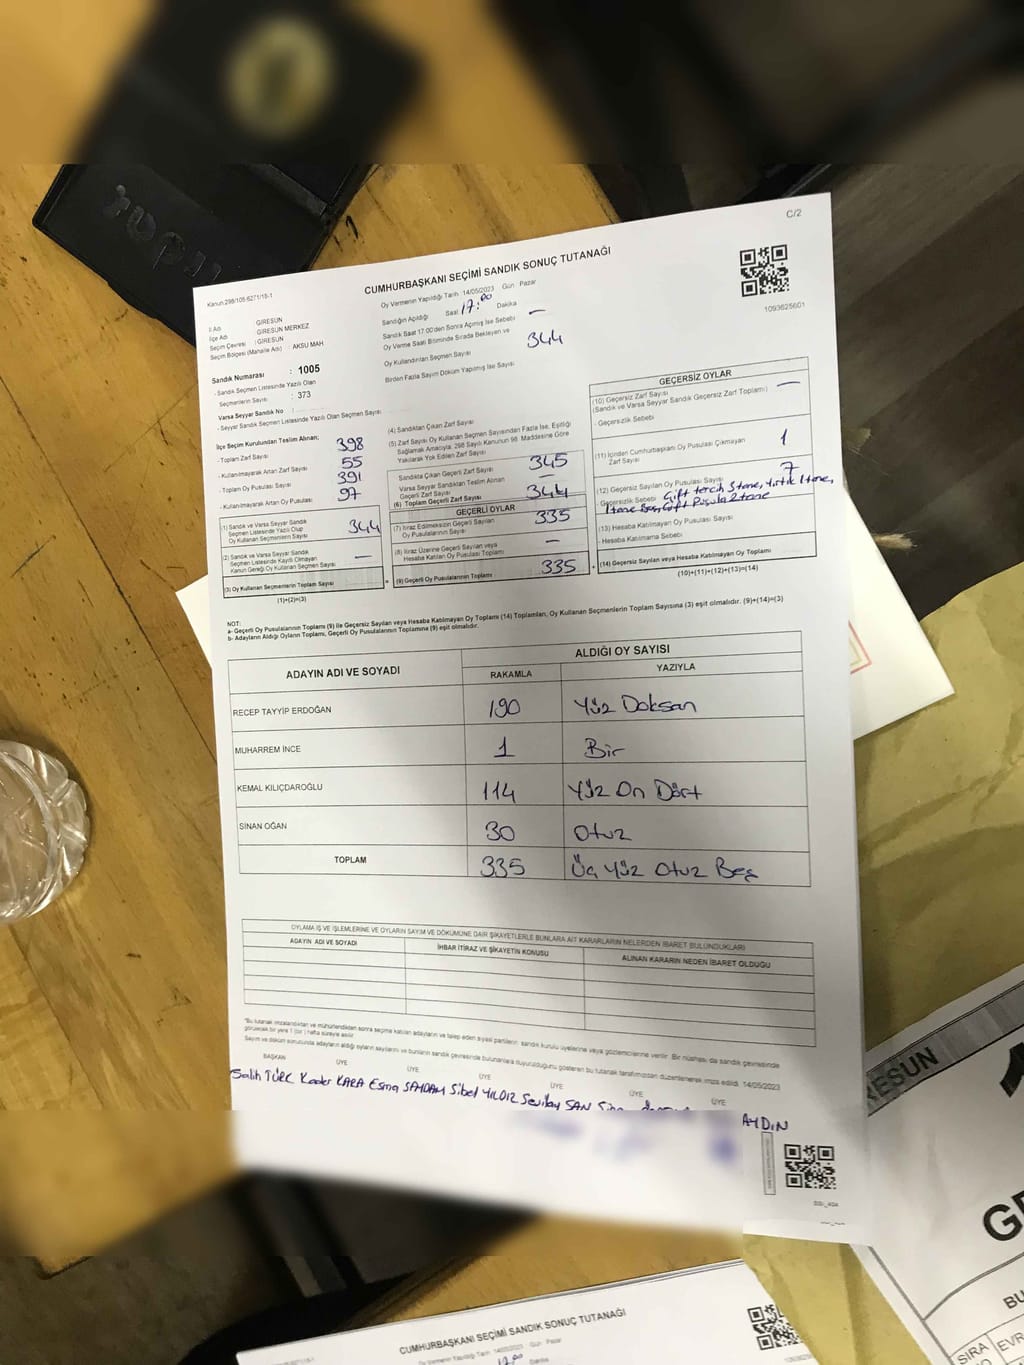 C/2
CUMHURBAŞKANI SEÇİMİ SANDIK SONUÇ TUTANAĞI
Kanun:298/105-6271/18-1
Oy Vermenin Yapıldığı Tarih 14/05/2023 Gün Pazar
1093625601
İl Adı : GİRESUN
İlçe Adı : GİRESUN MERKEZ
Seçim Çevresi : GİRESUN
Seçim Bölgesi (Mahalle Adı) : AKSU MAH
Sandık Numarası : 1005
- Sandık Seçmen Listesinde Yazılı Olan
Seçmenlerin Sayısı : 373
Varsa Seyyar Sandık No :
- Seyyar Sandık Seçmen Listesinde Yazılı Olan Seçmen Sayısı
Sandığın Açıldığı Saat 17:00 Dakika
Sandık Saat 17:00'den Sonra Açmış İse Sebebi —
Oy Verme Saati Bitiminde Sırada Bekleyen ve
Oy Kullandırılan Seçmen Sayısı 344
Birden Fazla Sayım Döküm Yapılmış İse Sayısı
İlçe Seçim Kurulundan Teslim Alınan;
- Toplam Zarf Sayısı 398
- Kullanılmayarak Artan Zarf Sayısı 55
- Toplam Oy Pusulası Sayısı 391
- Kullanılmayarak Artan Oy Pusulası 97
(1) Sandık ve Varsa Seyyar Sandık
Seçmen Listesinde Yazılı Olup
Oy Kullanan Seçmenlerin Sayısı 344
(2) Sandık ve Varsa Seyyar Sandık
Seçmen Listesinde Kayıtlı Olmayan
Kanun Gereği Oy Kullanan Seçmen Sayısı —
(3) Oy Kullanan Seçmenlerin Toplam Sayısı
(1)+(2)=(3)
(4) Sandıktan Çıkan Zarf Sayısı
(5) Zarf Sayısı Oy Kullanan Seçmen Sayısından Fazla İse, Eşitliği
Sağlamak Amacıyla; 298 Sayılı Kanunun 98. Maddesine Göre
Yakılarak Yok Edilen Zarf Sayısı
Sandıkta Çıkan Geçerli Zarf Sayısı 345
Varsa Seyyar Sandıktan Teslim Alınan
Geçerli Zarf Sayısı —
(6) Toplam Geçerli Zarf Sayısı 344
GEÇERLİ OYLAR
(7) İtiraz Edilmeksizin Geçerli Sayılan
Oy Pusulalarının Sayısı 335
(8) İtiraz Üzerine Geçerli Sayılan veya
Hesaba Katılan Oy Pusulası Toplamı —
(9) Geçerli Oy Pusulalarının Toplamı 335
GEÇERSİZ OYLAR
(10) Geçersiz Zarf Sayısı —
(Sandık ve Varsa Seyyar Sandık Geçersiz Zarf Toplamı)
- Geçersizlik Sebebi
(11) İçinden Cumhurbaşkanı Oy Pusulası Çıkmayan
Zarf Sayısı 1
(12) Geçersiz Sayılan Oy Pusulası Sayısı 7
- Geçersizlik Sebebi Çift tercih 3 tane, Yırtık 1 tane,
1 tane Boş, Çift Pusula 2 tane
(13) Hesaba Katılmayan Oy Pusulası Sayısı
- Hesaba Katılmama Sebebi
(14) Geçersiz Sayılan veya Hesaba Katılmayan Oy Toplamı
(10)+(11)+(12)+(13)=(14)
NOT:
a- Geçerli Oy Pusulalarının Toplamı (9) ile Geçersiz Sayılan veya Hesaba Katılmayan Oy Toplamı (14) Toplamları, Oy Kullanan Seçmenlerin Toplam Sayısına (3) eşit olmalıdır. (9)+(14)=(3)
b- Adayların Aldığı Oyların Toplamı, Geçerli Oy Pusulalarının Toplamına (9) eşit olmalıdır.
ADAYIN ADI VE SOYADI
ALDIĞI OY SAYISI
RAKAMLA YAZIYLA
RECEP TAYYİP ERDOĞAN 190 Yüz Doksan
MUHARREM İNCE 1 Bir
KEMAL KILIÇDAROĞLU 114 Yüz On Dört
SİNAN OĞAN 30 Otuz
TOPLAM 335 Üç Yüz Otuz Beş
OYLAMA İŞ VE İŞLEMLERİNE VE OYLARIN SAYIM VE DÖKÜMÜNE DAİR ŞİKAYETLERLE BUNLARA AİT KARARLARIN NELERDEN İBARET BULUNDUKLARI
ADAYIN ADI VE SOYADI İHBAR İTİRAZ VE ŞİKAYETİN KONUSU ALINAN KARARIN NEDEN İBARET OLDUĞU
"Bu tutanak imzalandıktan ve mühürlendikten sonra seçime katılan adayların ve talep eden siyasi partilerin sandık kurulu üyelerine veya gözlemcilerine verilir. Bir nüshası da sandık çevresinde
görülecek bir yere 1 (bir) hafta süreyle asılır.
Sayım ve döküm sonucunda adayların aldığı oyların sayılarını ve bunların sandık çevresinde bulunanlara duyurulduğunu gösteren bu tutanak tarafımızdan düzenlenerek imza edildi. 14/05/2023
BAŞKAN ÜYE ÜYE ÜYE ÜYE ÜYE ÜYE
Salih TÜRK Kader KARA Esma SAYDAM Sibel YILDIZ Sevilay SAN
AYDIN
RESUN
BU
SIRA
CUMHURBAŞKANI SEÇİMİ SANDIK SONUÇ TUTANAĞI
Oy Vermenin Yapıldığı Tarih 14/05/2023 Gün Pazar